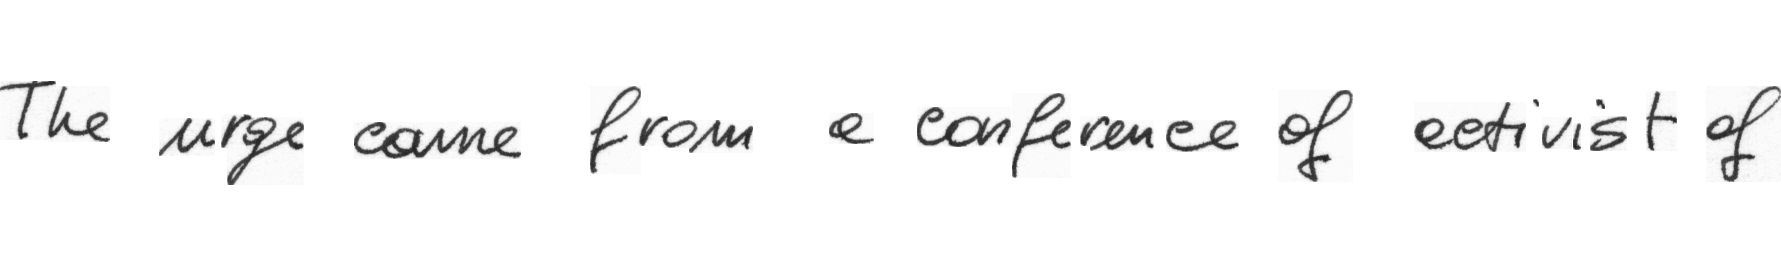 The urge came from a conference of activist of